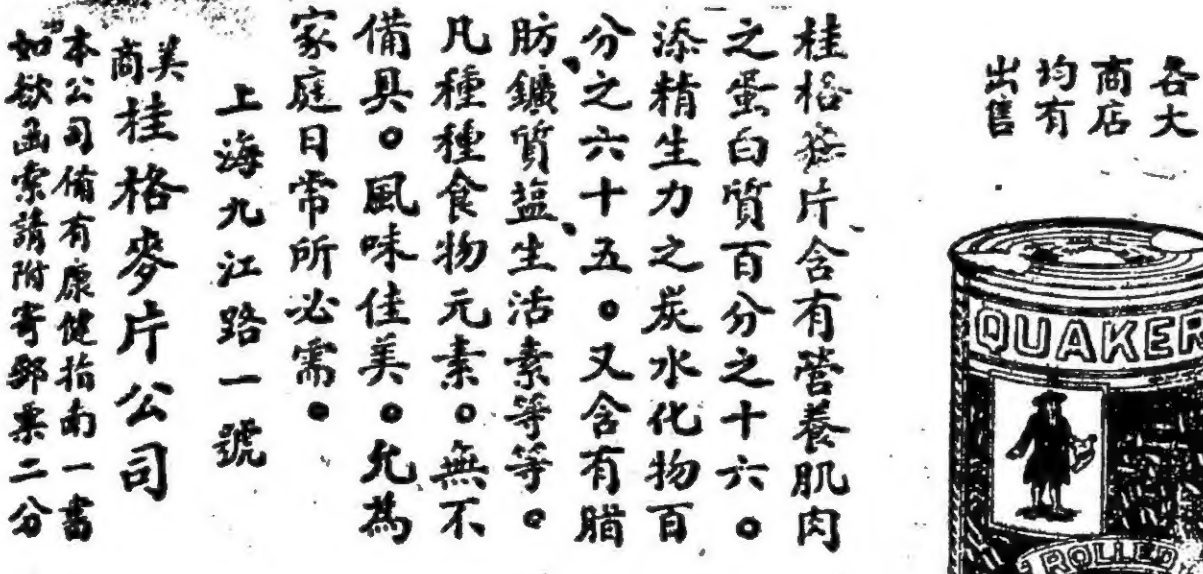 各大
商店
均有
出售
QUAKER
ROLLED
桂格麥片含有營養肌肉
之蛋白質百分之十六。
添精生力之炭水化物百
分之六十五。又含有脂
肪、鑛質塩、生活素等等。
凡種種食物元素。無不
備具。風味佳美。允為
家庭日常所必需。
上海九江路一號
美商桂格麥片公司
本公司備有康健指南一書
如欲函索請附寄郵票二分